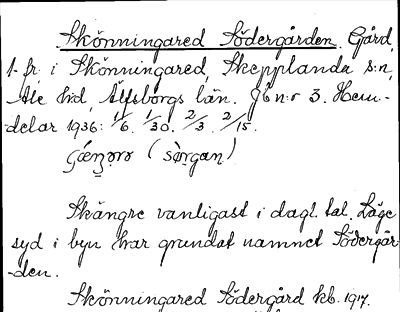 Skönningared Södergården. Gård,
1. fr. i Skönningared, Skepplanda s:n,
Ale hd, Älfsborgs län. Jb n:r 3. Hem-
delar 1936: 1/6. 1/30. 2/3. 2/15.
(sörgan)
Skängre vanligast i dagl. tal. Läge
syd i byn har grundat namnet Södergår-
-den.
Skönningared Södergård kb. 1917.